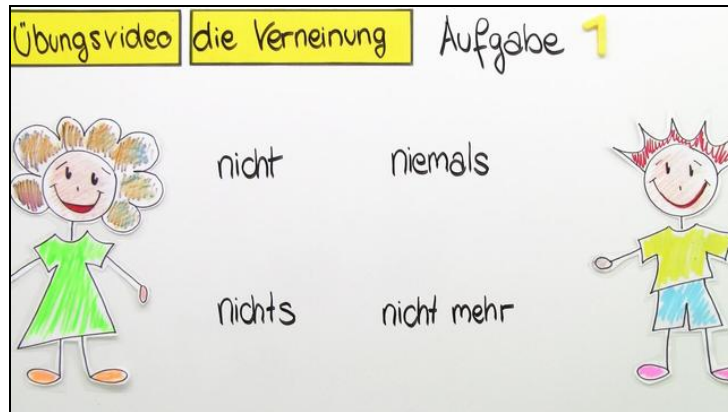 Übungsvideo die Verneinung Aufgabe 1
nicht niemals
nichts nicht mehr